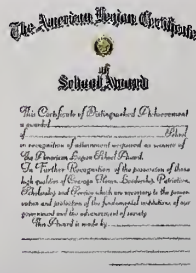 The American Legion Certificate
of
School Award
This Certificate of Distinguished Achievement
is awarded
of School
in recognition of attainment required as winner of
the American Legion School Award.
In Further Recognition of the possession of those
high qualities of Courage Honor Leadership Patriotism
Scholarship and Service which are necessary to the preser-
vation and protection of the fundamental institutions of our
government and the advancement of society
This Award is made by